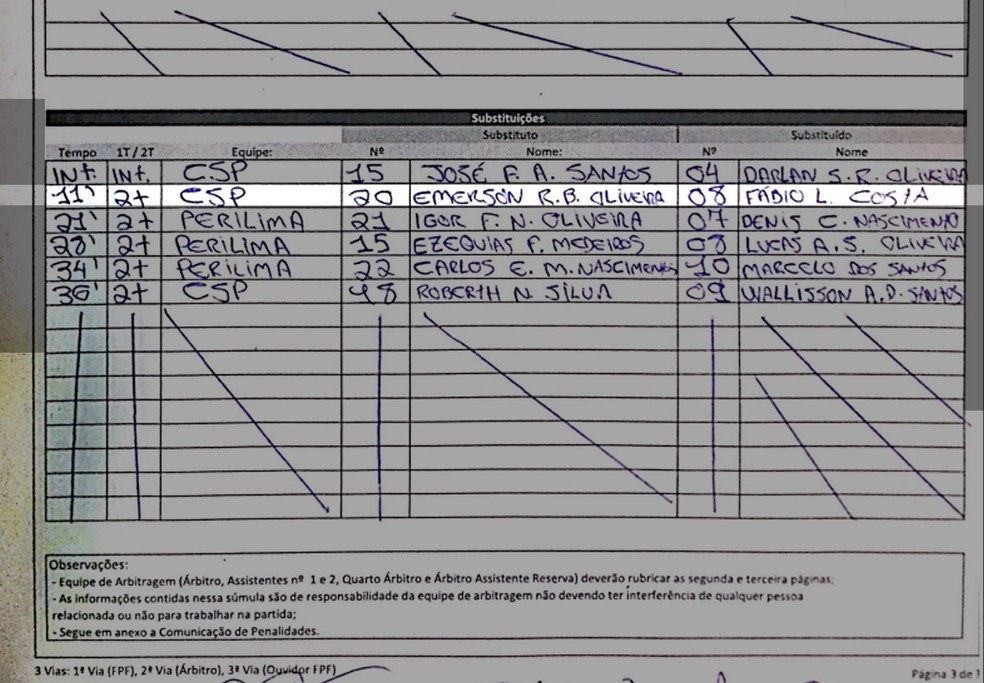 Substituições
Substituto Substituído
Tempo 1T / 2T Equipe: Nº Nome: Nº Nome
INT. INT. CSP 15 JOSÉ F. A. SANTOS 04 DARLAN S. R. OLIVEIRA
11' 2+ CSP 20 EMERSON R.B. OLIVEIRA 08 FÁBIO L. COSTA
21' 2+ PERILIMA 21 IGOR F. N. OLIVEIRA 07 DENIS C. NASCIMENTO
28' 2+ PERILIMA 15 EZEQUIAS F. MEDEIROS 08 LUCAS A. S. OLIVEIRA
34' 2+ PERILIMA 22 CARLOS E. M. NASCIMENTO 10 MARCELO DOS SANTOS
36' 2+ CSP 48 ROBERTH N SILVA 09 WALLISSON A.D. SANTOS
Observações:
- Equipe de Arbitragem (Árbitro, Assistentes nº 1 e 2, Quarto Árbitro e Árbitro Assistente Reserva) deverão rubricar as segunda e terceira páginas;
- As informações contidas nessa súmula são de responsabilidade da equipe de arbitragem não devendo ter interferência de qualquer pessoa
relacionada ou não para trabalhar na partida;
- Segue em anexo a Comunicação de Penalidades.
3 Vias: 1ª Via (FPF), 2ª Via (Árbitro), 3ª Via (Ouvidor FPF) Página 3 de 3